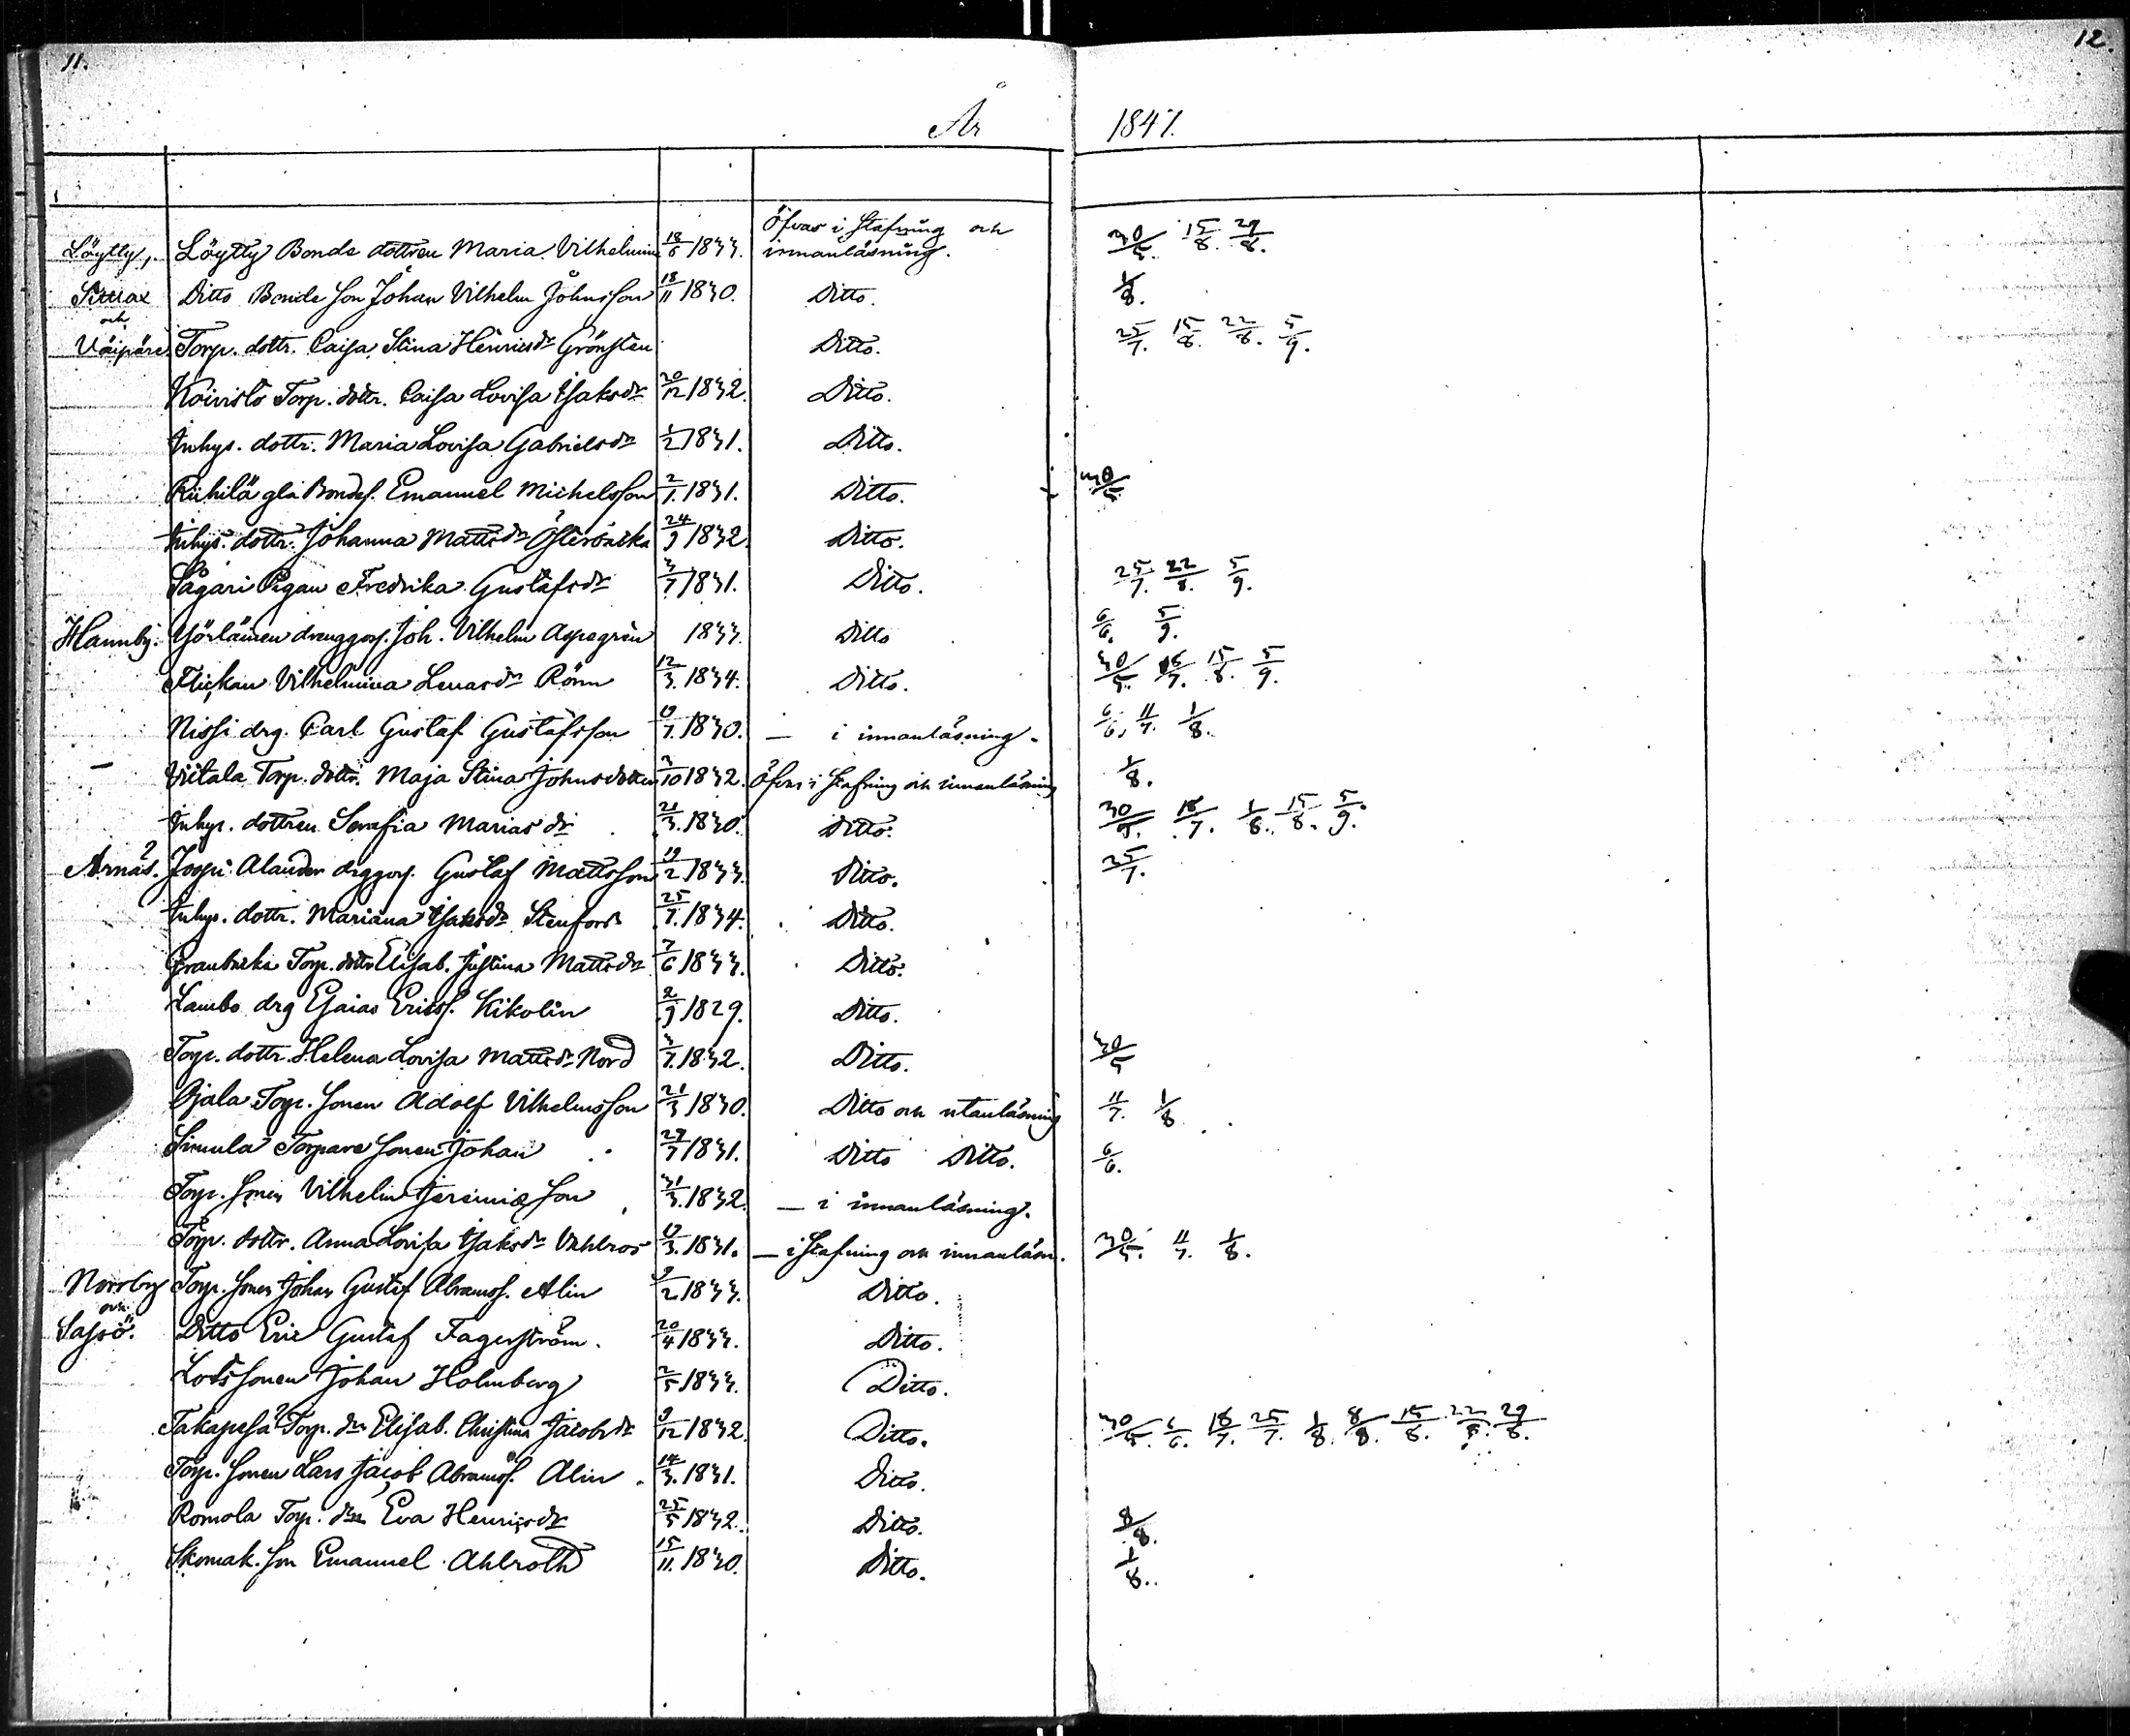 11.
12.
År 1847.
Öfvas i stafning och
Löytty, Löytty Bonde dottren Maria Vilhelmina 18/6 1833. innanläsning. 30/5. 15/8. 29/8.
Ditto Bonde son Johan Vilhelm Johnsson 18/11 1830. Ditto. 1/8.
och
Väipäre Torp. dottr. Caisa Stina Henricsdr Grönsten Ditto. 25/7. 15/8. 22/8. 5/9.
Koivisto Torp. dottr. Caisa Lovisa Isaksdr 20/12 1832. Ditto.
Inhys. dottr. Maria Lovisa Gabrielsdr 1/2 1831. Ditto.
Riihilä gla Bondes. Emanuel Michelsson 2/1. 1831. Ditto. 30/5.
Inhys. dottr. Johanna Mattsdr 24/9 1832. Ditto.
Sågari Pigan Fredrika Gustafsdr 3/7 1831. Ditto. 25/7. 22/8. 5/9.
Hannby. Yörläinen drenggoss. Joh. Vilhelm Aspegrén 1833. Ditto 6/6. 5/9.
Flickan Vilhelmina Lenasdr Rönn 12/3. 1834. Ditto. 30/5. 18/7. 15/8. 5/9.
Nissi drg. Carl Gustaf Gustafsson 19/7. 1830. — i innanläsning. 6/6. 11/7. 1/8.
— Viitala Torp. dottr. Maja Stina Johnsdotter 2/10 1832. Öfvas i stafning och innanläsning 1/8.
Inhys. dottren Serafia Mariasdr 21/3. 1830. Ditto. 30/5. 18/7. 1/8. 15/8. 5/9.
Arnäs. Joopi Alander drggoss. Gustaf Mattsson 19/2 1833. Ditto. 25/7.
Inhys. dottr. Mariana Isaksdr Stenfors 25/7. 1834. Ditto.
Granbacka Torp. dottr Elisab. Justina Mattsdr 7/6 1833. Ditto.
Lambo drg Esaias Ericss. Kikolin 2/9 1829. Ditto.
Torp. dottr. Helena Lovisa Mattsdr Nord 3/7. 1832. Ditto. 30/5
Ojala Torp. sonen Adolf Vilhelmsson 21/3 1830. Ditto och utanläsning 11/7. 1/8
Simula Torpare sonen Johan 29/7 1831. Ditto Ditto. 6/6.
Torp. sonen Vilhelm Jeremiæson 31/3. 1832. — i innanläsning.
Torp. dottr. Anna Lovisa Isaksdr Vahlros 19/3. 1831. — i stafning och innanläsn. 30/5. 11/7. 1/8.
Norrby Torp. sonen Johan Gustaf Abramss. Alin 9/2. 1833. Ditto.
och
Sassö. Ditto Eric Gustaf Fagerström. 20/4 1833. Ditto.
Lots sonen Johan Holmberg 2/5 1833. Ditto.
Takapesä Torp. dr Elisab. Christina Jacobsdr 9/12 1832. Ditto. 30/5. 6/6. 18/7. 25/7. 1/8. 8/8. 15/8. 22/8. 29/8.
Torp. sonen Lars Jacob Abramss. Alin 14/3. 1831. Ditto.
Romola Torp. dr Eva Henricsdr 25/5 1832. Ditto. 8/8.
Skomak. son Emanuel Ahlroth 15/11. 1830. Ditto. 1/8.